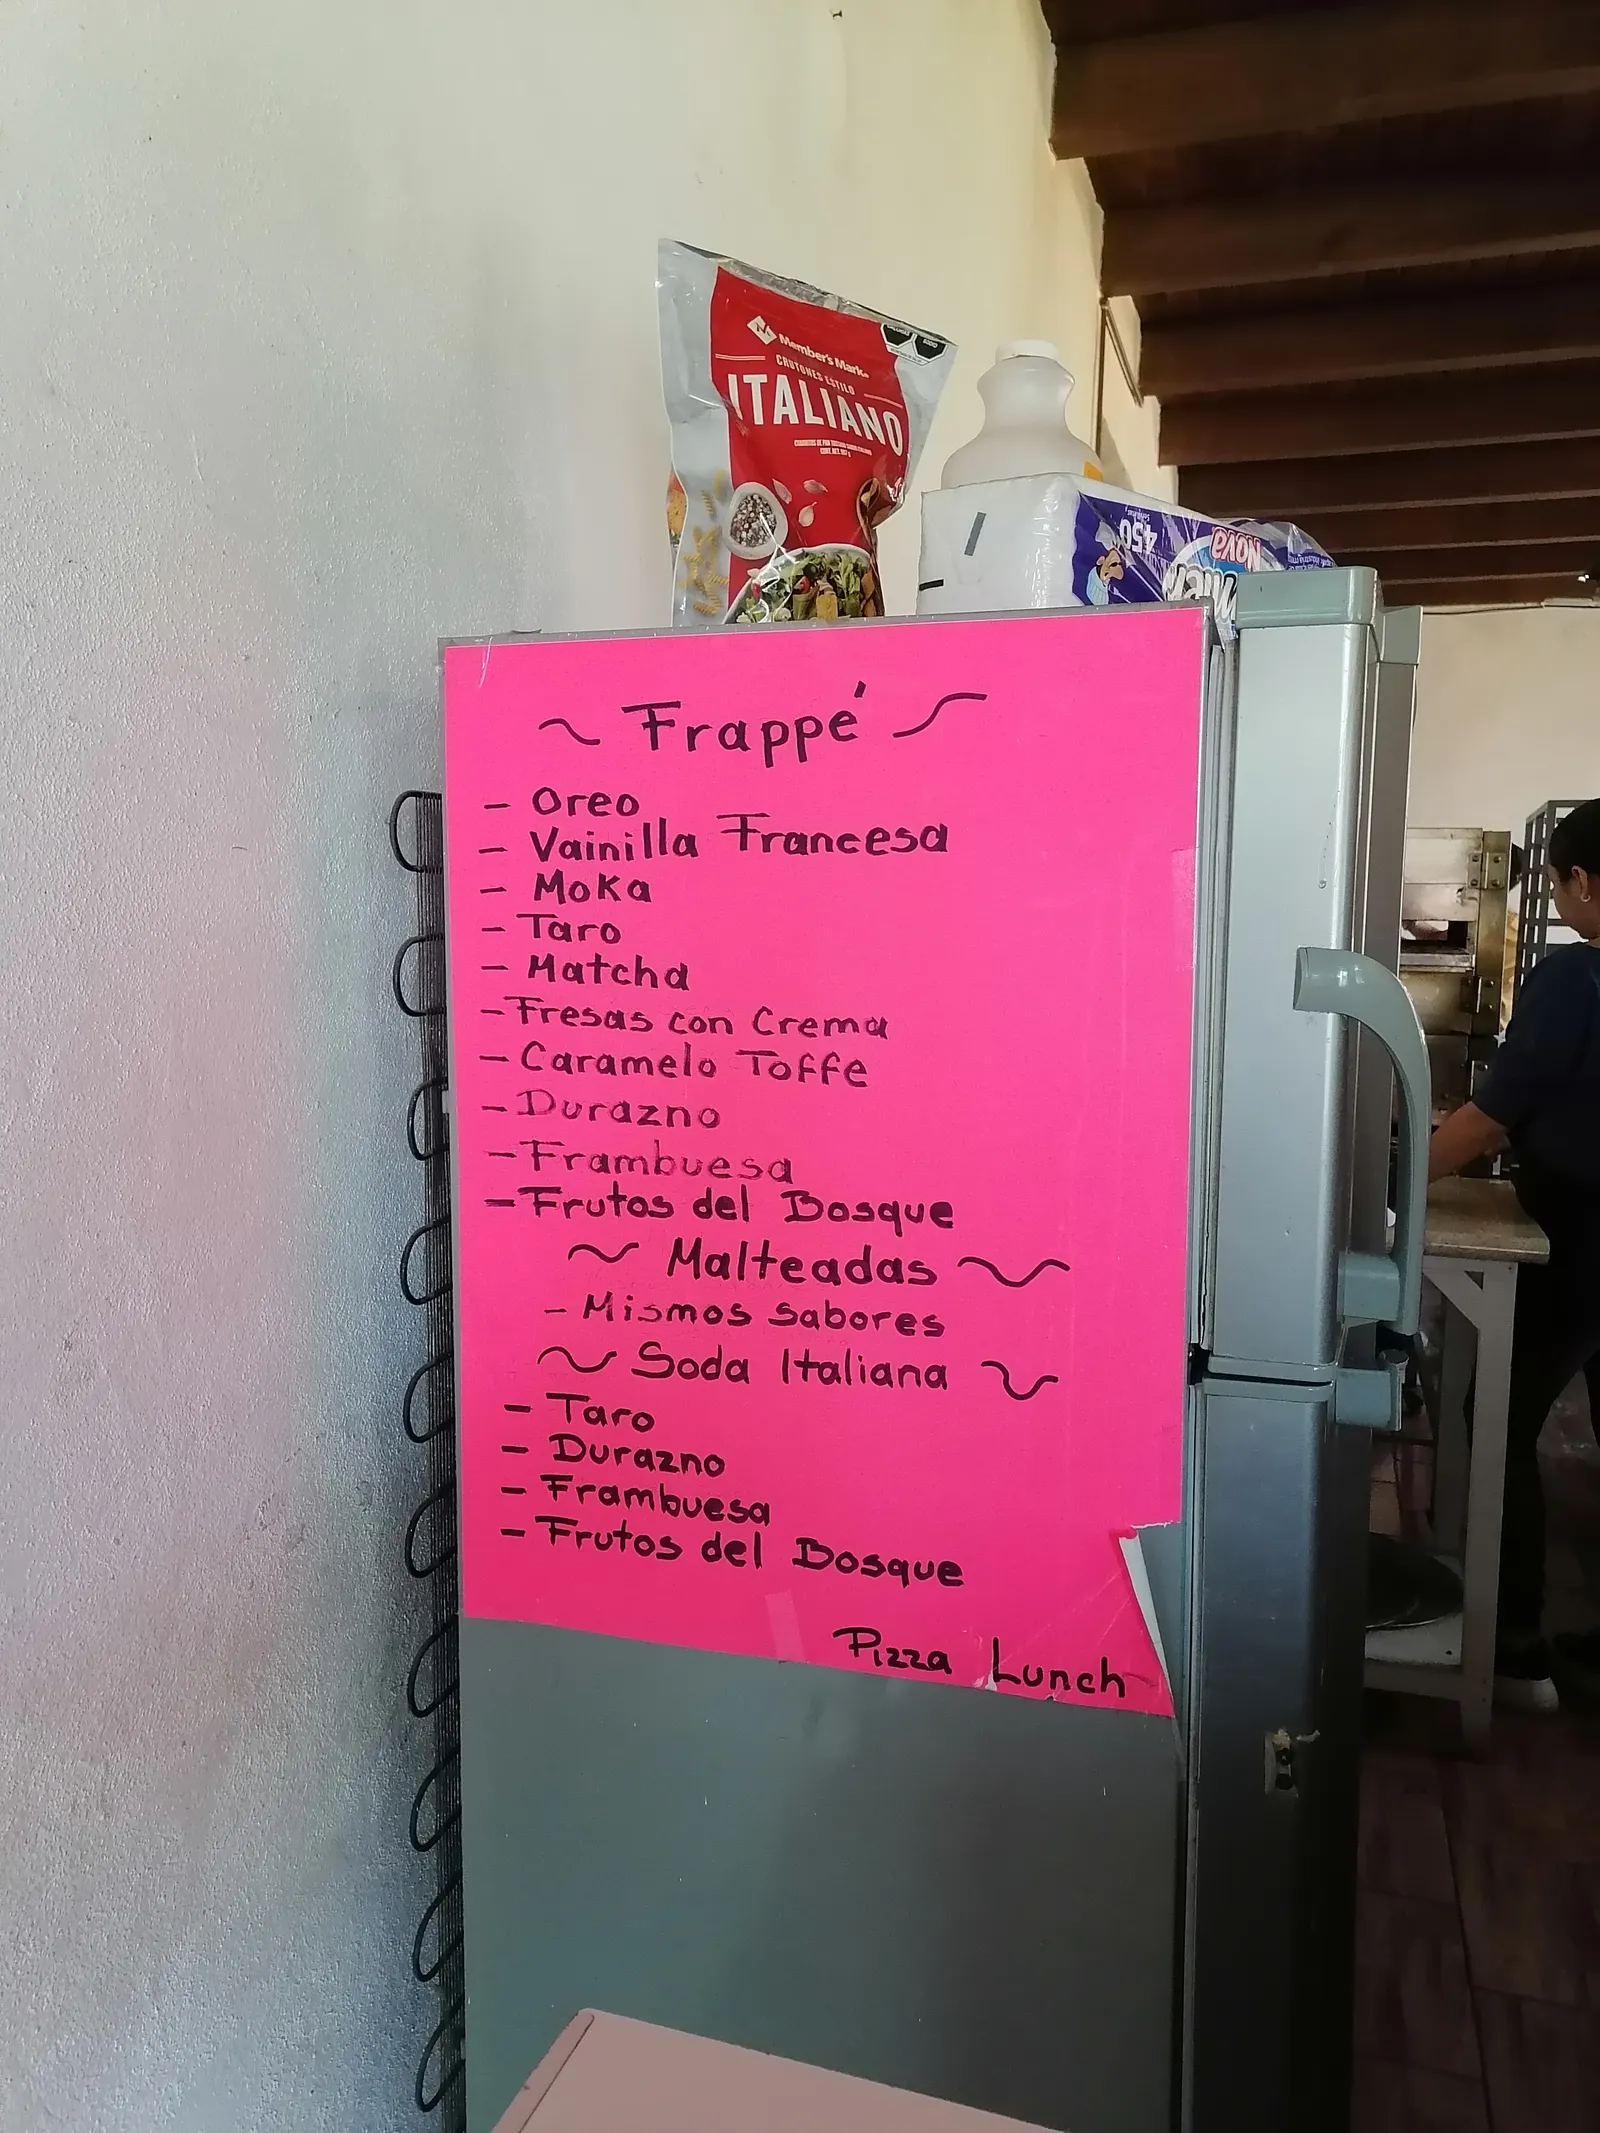 Member's Mark
CRUTONES ESTILO
ITALIANO
450
Nova
~ Frappé ~
- Oreo
- Vainilla Francesa
- Moka
- Taro
- Matcha
- Fresas con Crema
- Caramelo Toffe
- Durazno
- Frambuesa
- Frutos del Bosque
~ Malteadas ~
- Mismos sabores
~ Soda Italiana ~
- Taro
- Durazno
- Frambuesa
- Frutos del Bosque
Pizza Lunch